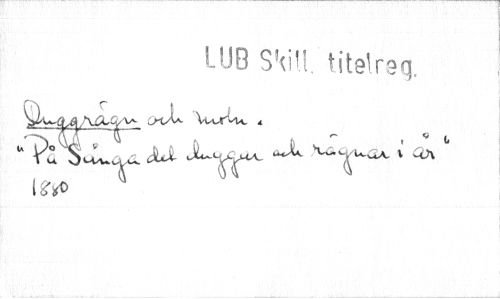 LUB Skill. titelreg.
Duggrägn och moln.
"På Sånga det duggar och rägnar i år"
1880